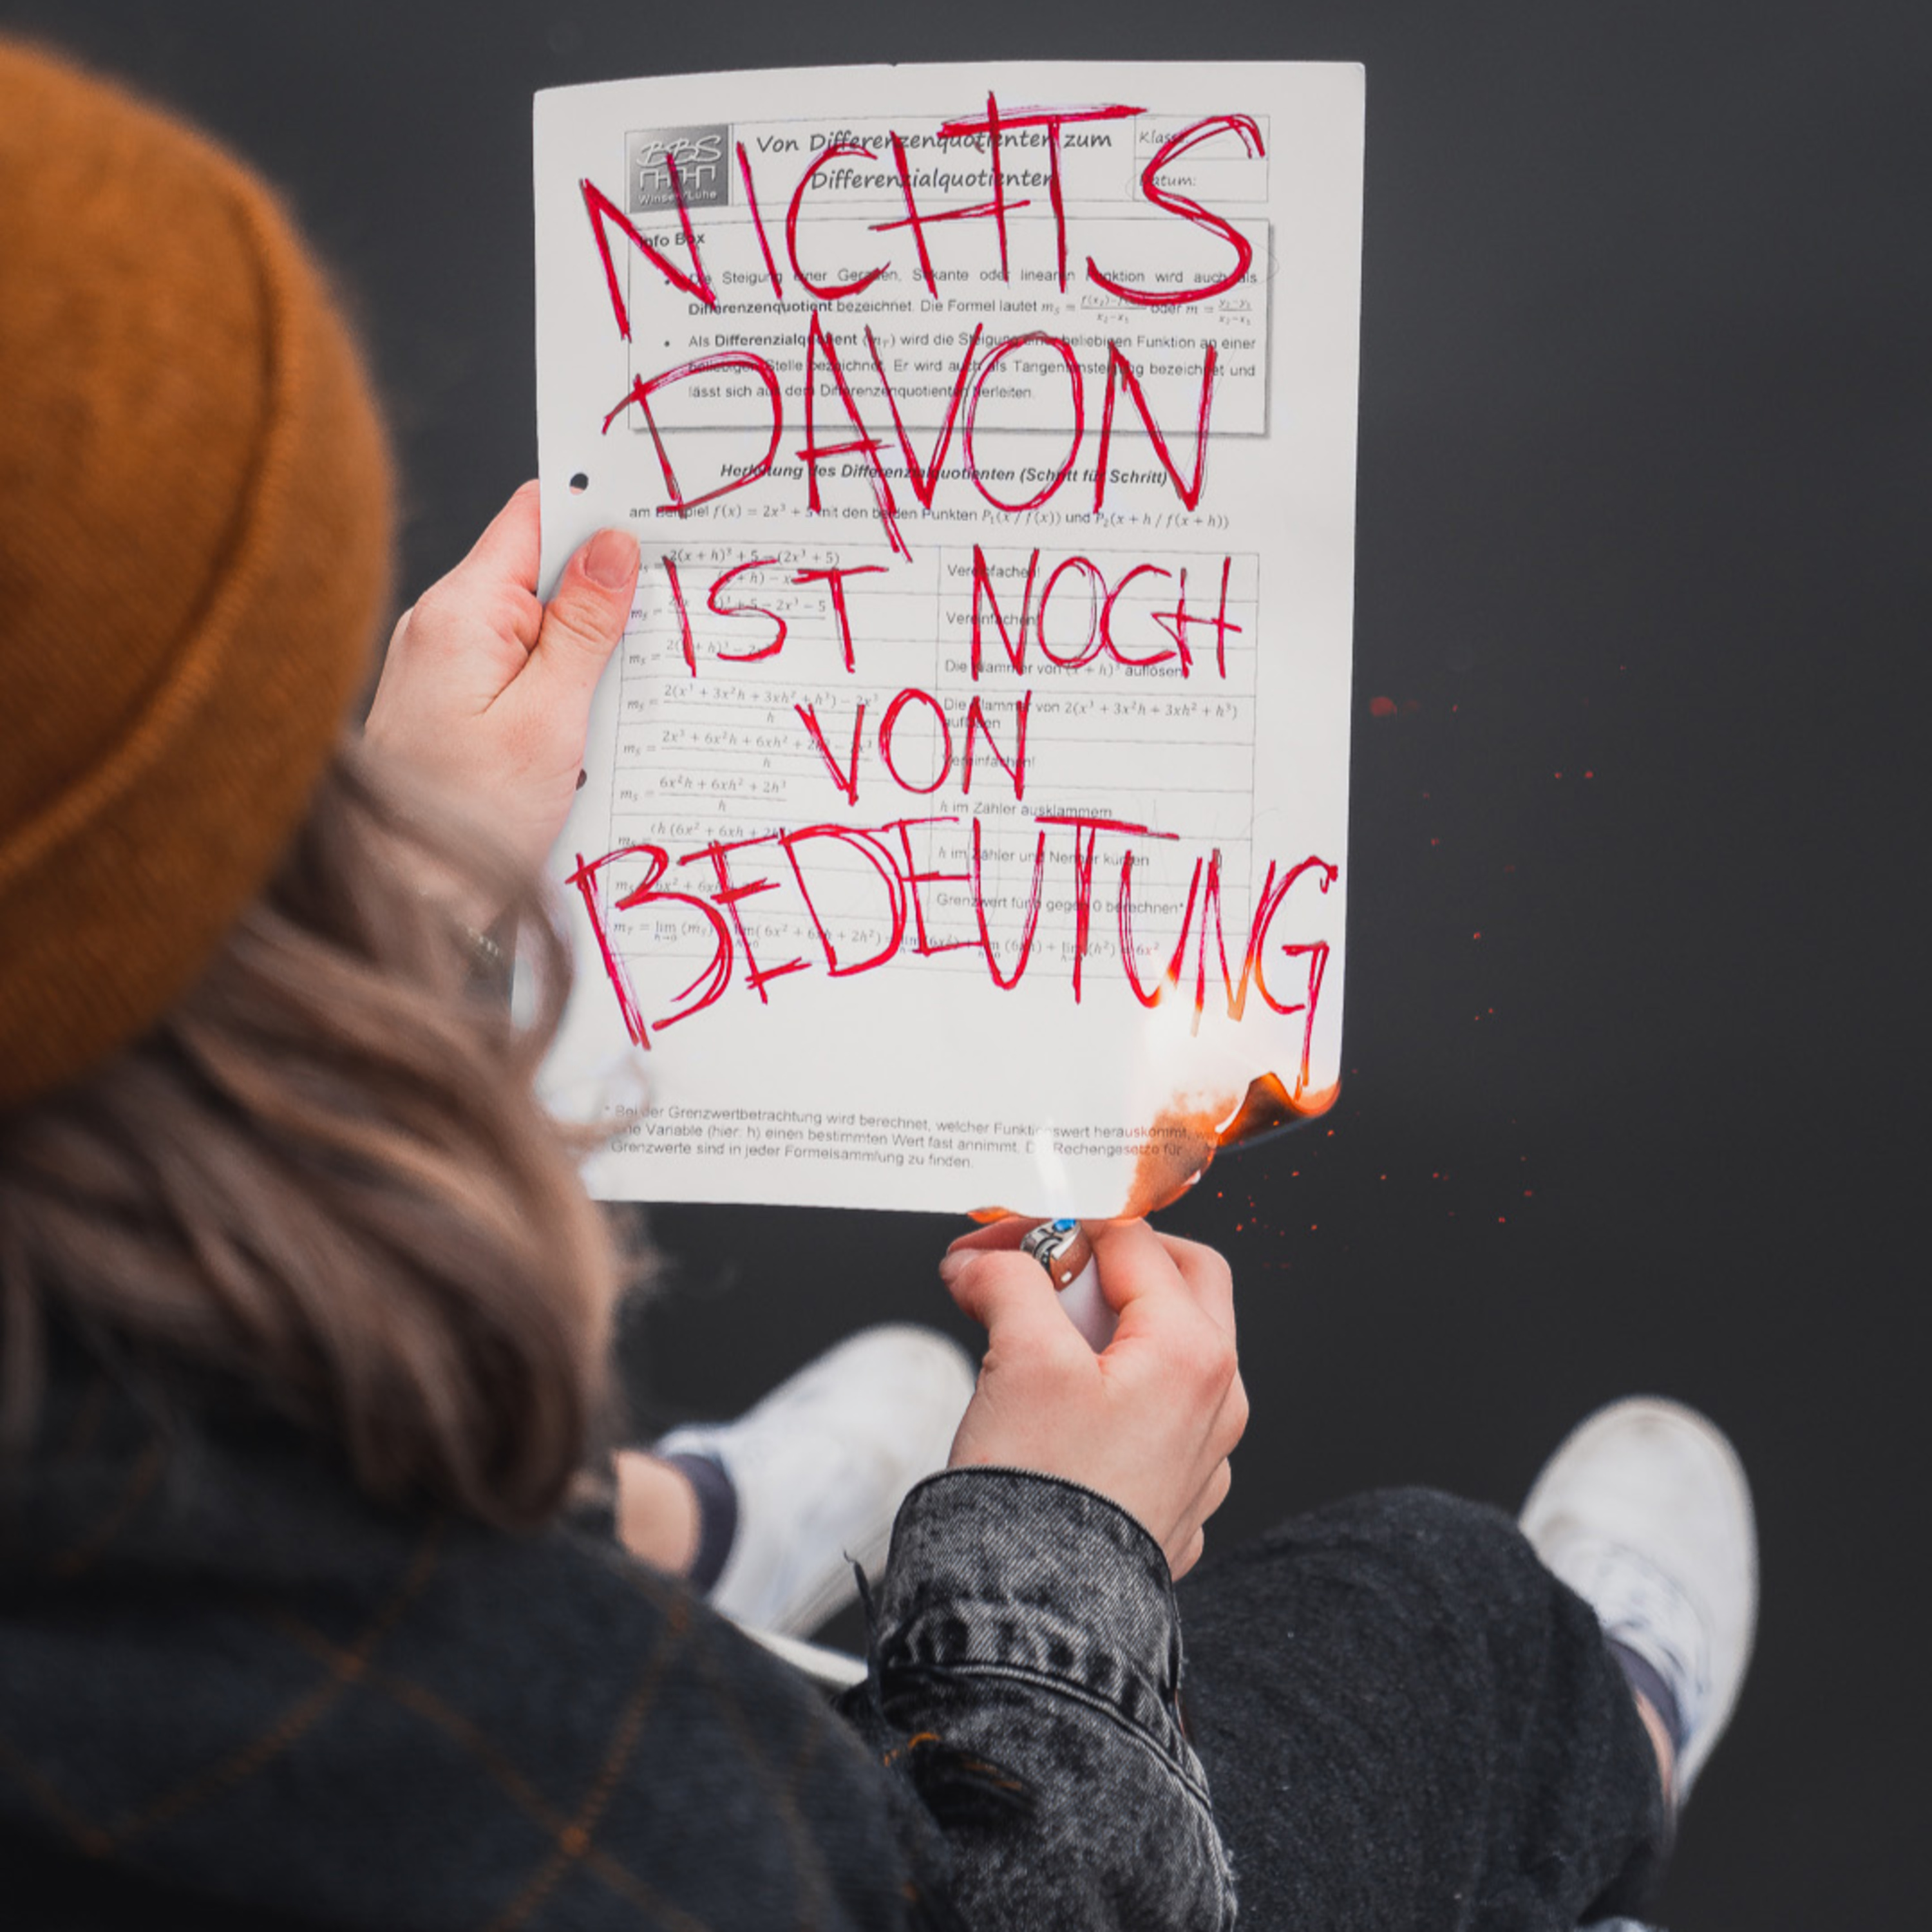 NICHTS
DAVON
IST NOCH
VON
BEDEUTUNG
BBS
Winsen/Luhe
Von Differenzenquotienten zum
Differenzialquotienten
Klasse:
Datum:
Info Box
Die Steigung einer Geraden, Sekante oder linearen Funktion wird auch als
Differenzenquotient bezeichnet. Die Formel lautet m_S = oder m = (y₂−y₁)/(x₂−x₁)
Als Differenzialquotient (m_T) wird die Steigung einer beliebigen Funktion an einer
beliebigen Stelle bezeichnet. Er wird auch als Tangentensteigung bezeichnet und
lässt sich aus dem Differenzenquotienten herleiten.
Herleitung des Differenzialquotienten (Schritt für Schritt)
am Beispiel f(x) = 2x³ + 5 mit den beiden Punkten P₁(x / f(x)) und P₂(x + h / f(x + h))
2(x + h)³ + 5 − (2x³ + 5)
(x + h) − x
Vereinfachen!
m_S = − 2x³ − 5
Vereinfachen!
m_S = 2(x + h)³
Die Klammer von (x + h)³ auflösen
m_S = (2(x³ + 3x²h + 3xh² + h³) − 2x³)/h
Die Klammer von 2(x³ + 3x²h + 3xh² + h³)
auflösen
m_S = (2x³ + 6x²h + 6xh² + 2h³ − 2x³)/h
Vereinfachen!
m_S = (6x²h + 6xh² + 2h³)/h
h im Zähler ausklammern
(h (6x² + 6xh +
h im Zähler und Nenner kürzen
m_S = 6x² + 6xh
Grenzwert für h gegen 0 berechnen*
m_T = lim (m_S) = lim( 6x² + 6xh + 2h²) = lim(6x²) + lim (6xh) + lim (h²) = 6x²
* Bei der Grenzwertbetrachtung wird berechnet, welcher Funktionswert herauskommt,
eine Variable (hier: h) einen bestimmten Wert fast annimmt. Die Rechengesetze für
Grenzwerte sind in jeder Formelsammlung zu finden.